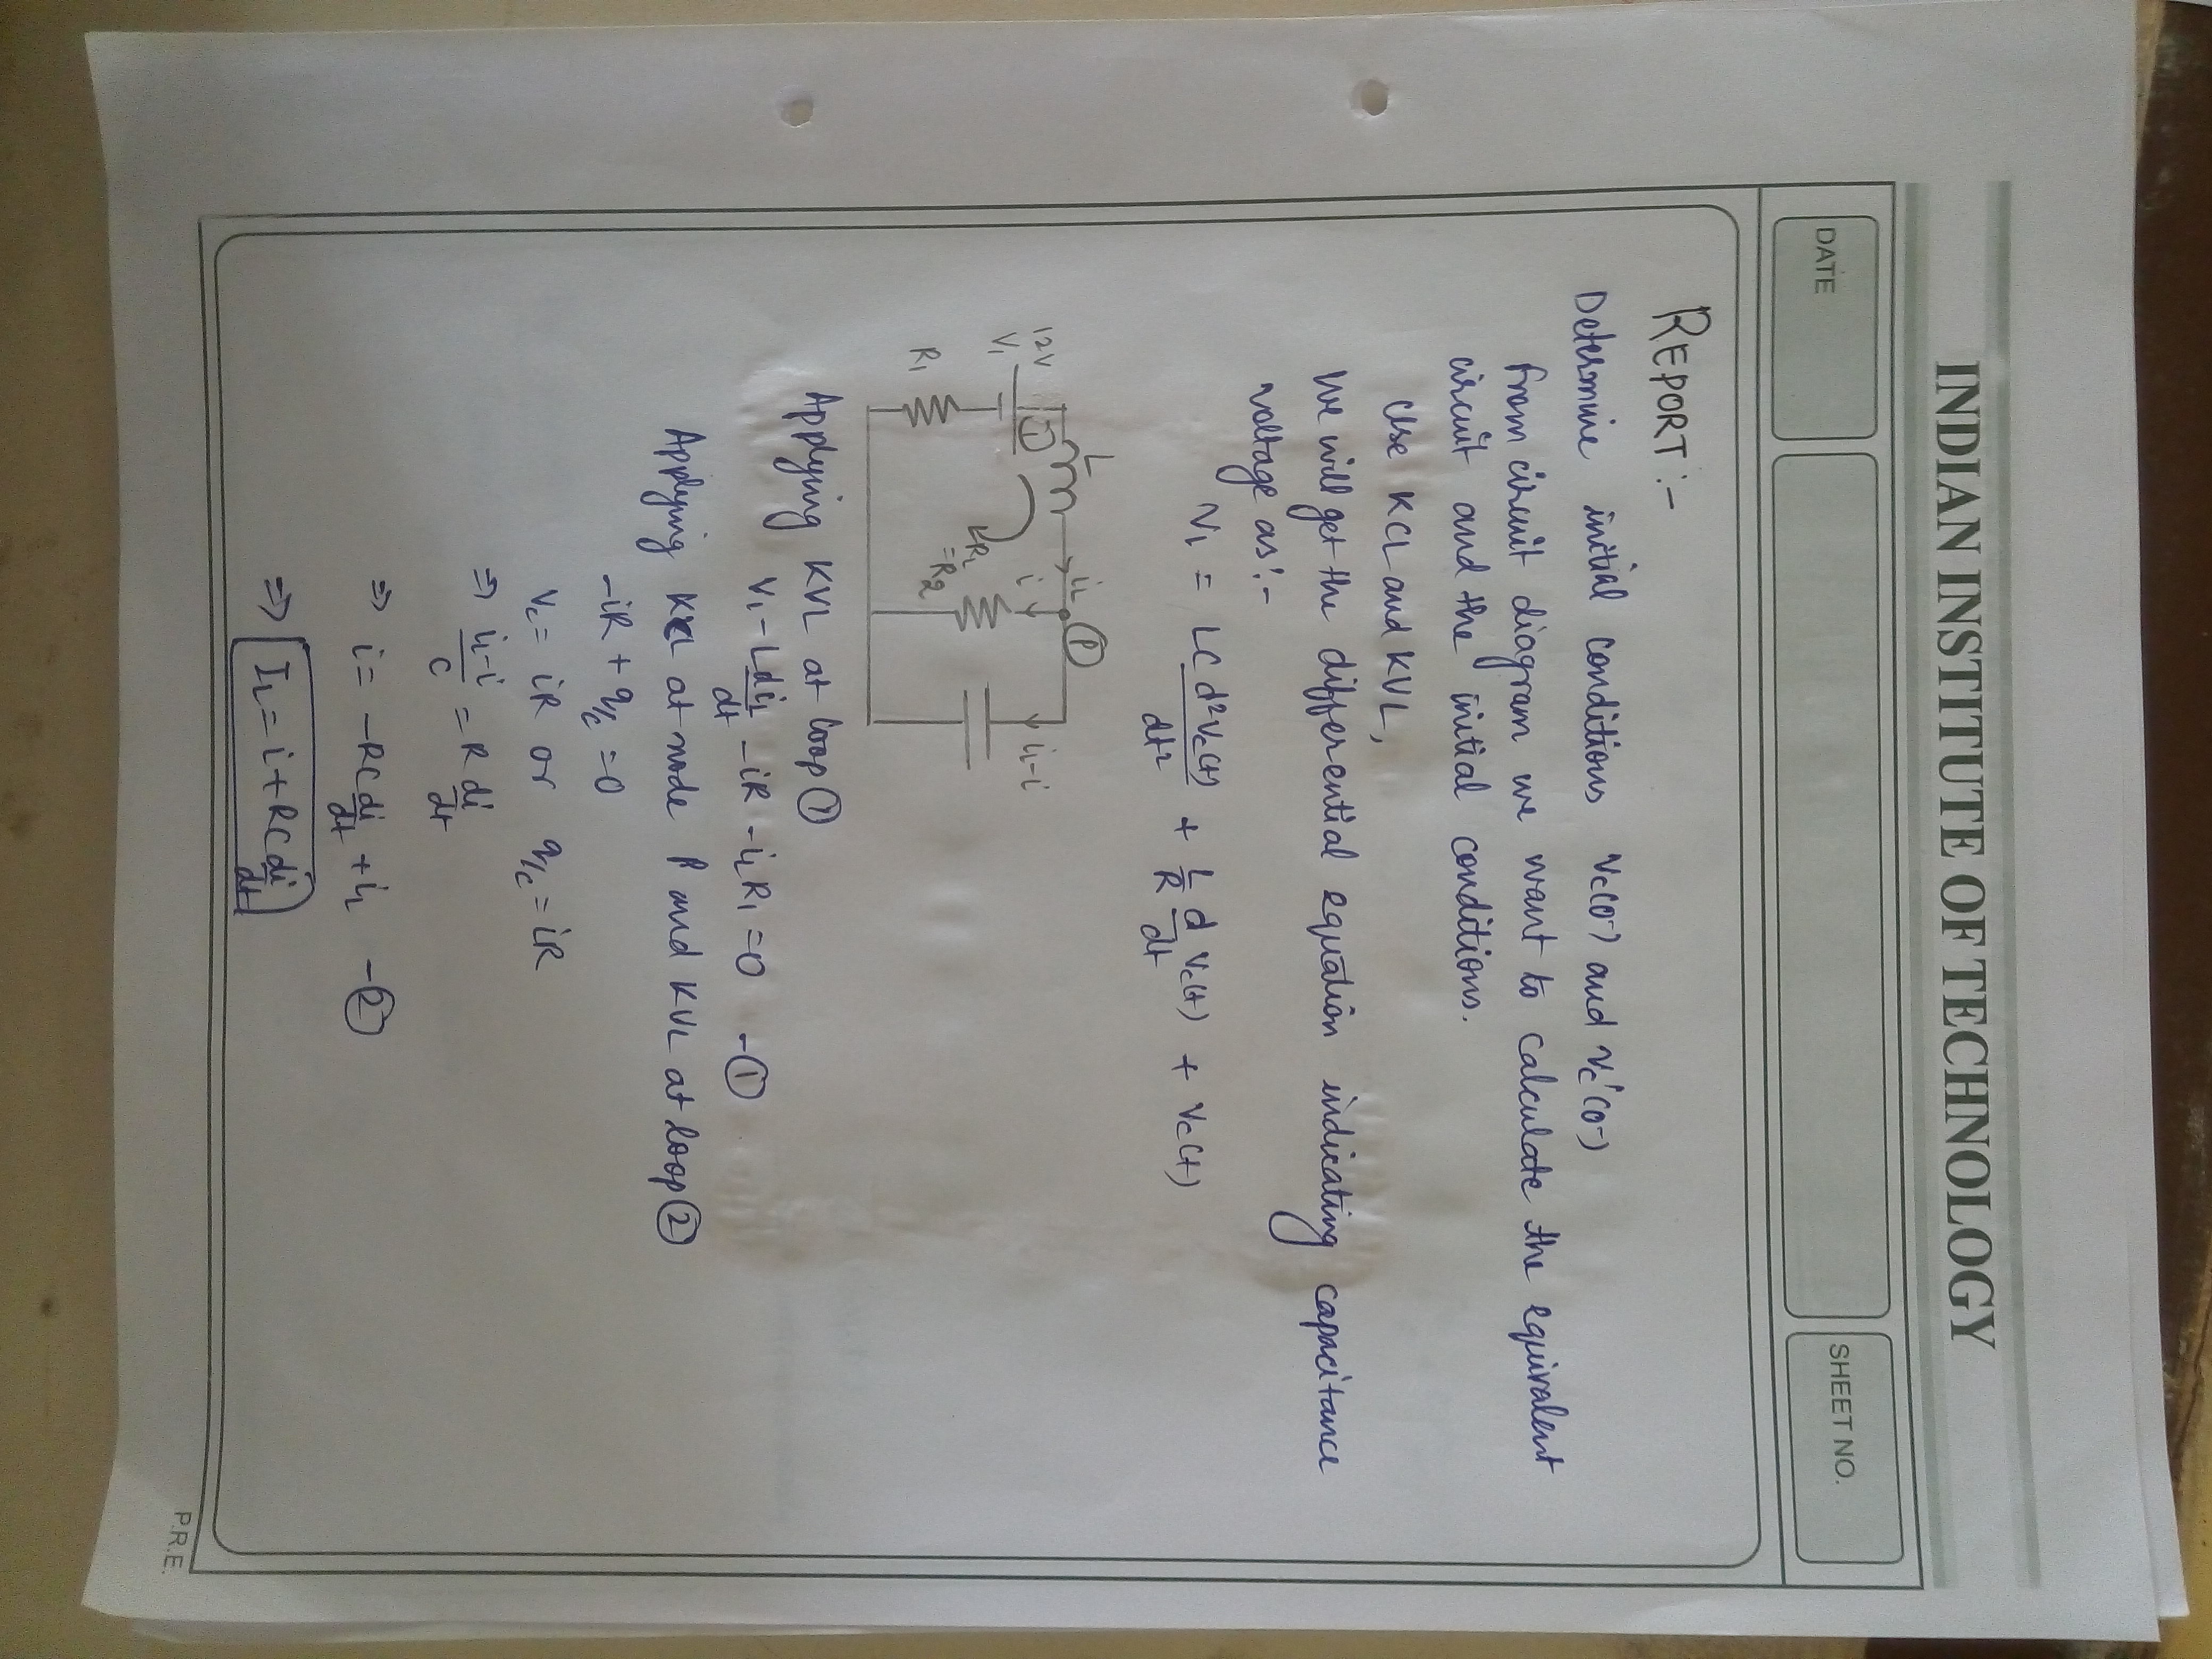 INDIAN INSTITUTE OF TECHNOLOGY
DATE
SHEET NO.
REPORT :-
Determine initial conditions Vc(0-) and Vc'(0-)
from circuit diagram we want to calculate the equivalent
circuit and the initial conditions.
Use KCL and KVL,
We will get the differential equation indicating capacitance
voltage as :-
V₁ = LC d²Vc(t)/dt² + L/R d/dt Vc(t) + Vc(t)
L
iL
P
12V
V₁
1
i
iL-i
RL
=R2
R₁
Applying KVL at loop ①
V₁ - L diL/dt - iR - iL R₁ = 0 - ①
Applying KCL at node P and KVL at loop ②
-iR + q/c = 0
Vc = iR or q/c = iR
⇒ iL-i/C = R di/dt
⇒ i = -RC di/dt + iL - ②
⇒ IL = i + RC di/dt
P.R.E.